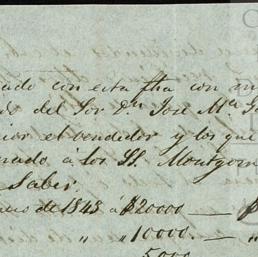 ado con esta fha con m
do del Sor Dn José Ma G
or el vendedor y los que
nado á los SS. Montgom
Saber.
de 1843 á $20000 — $
" " 10000. —
5000